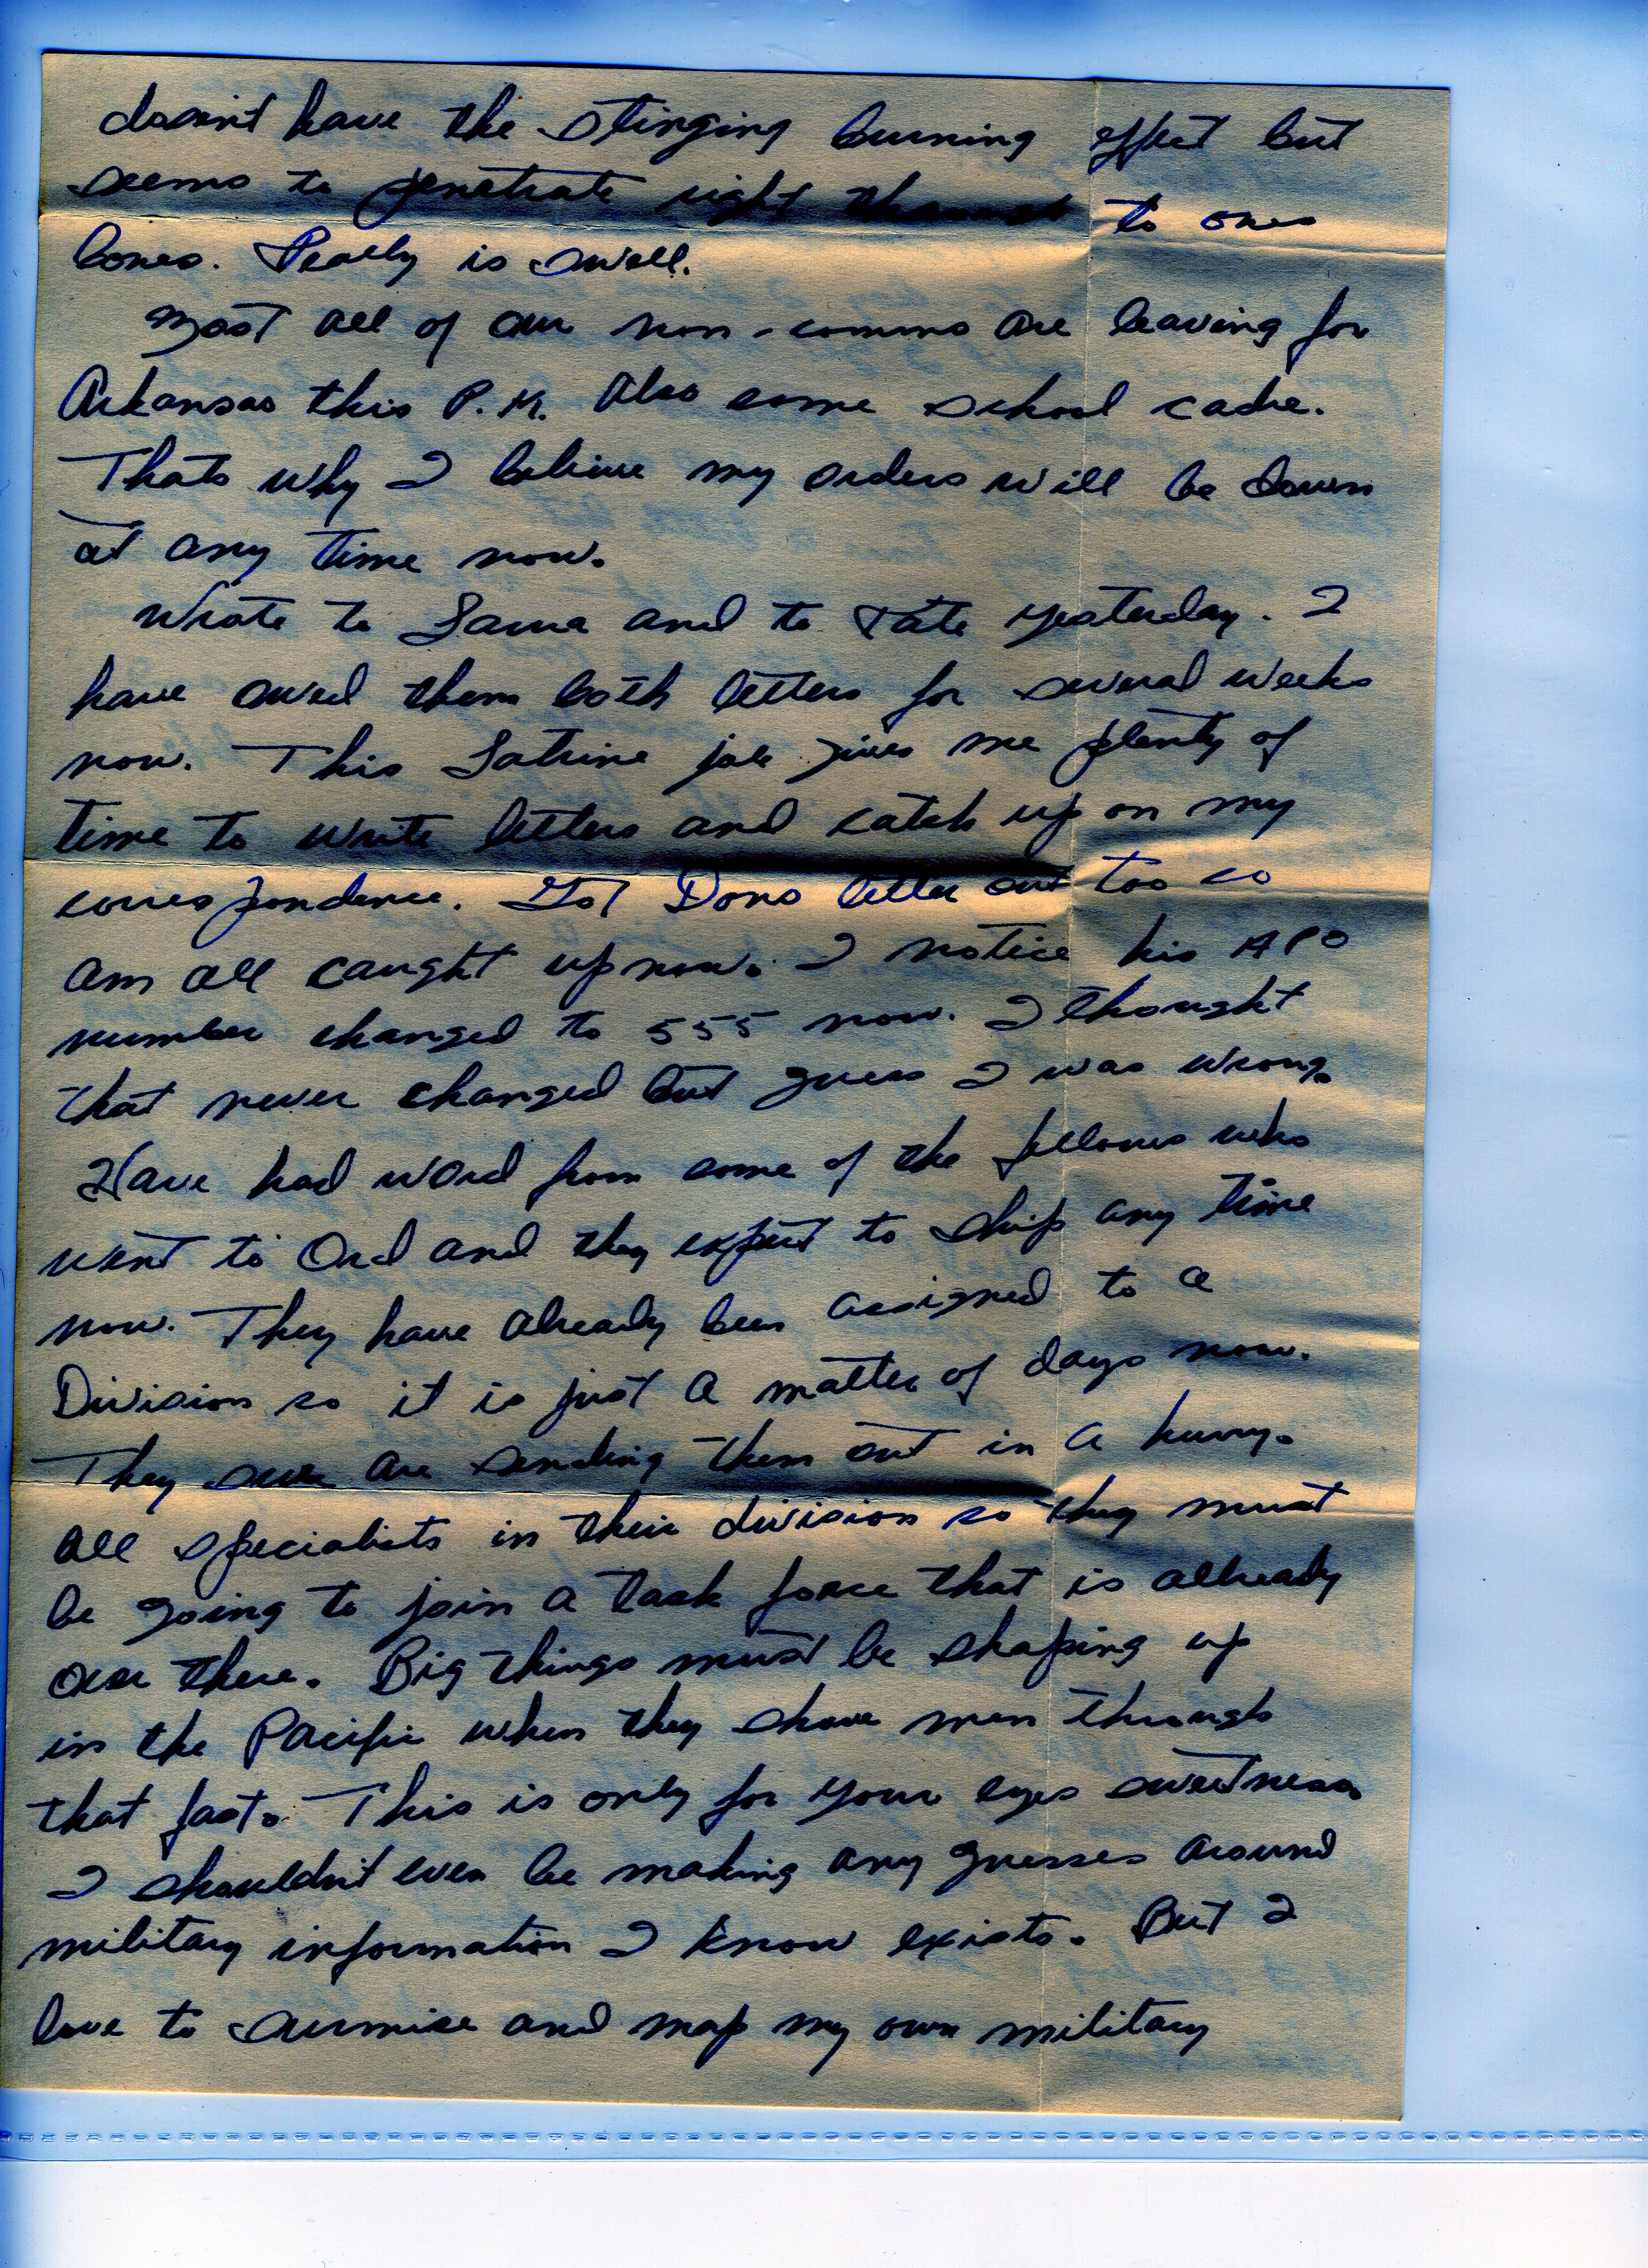 doesn't have the stinging burning effect but
seems to penetrate right through to ones
bones. Really is swell.
Most all of our non-comms are leaving for
Arkansas this P.M. Also some school cadre.
Thats why I believe my orders will be down
at any time now.
Wrote to and to yesterday. I
have owed them both letters for several weeks
now. This Latrine job gives me plenty of
time to write letters and catch up on my
correspondence. Got Dons letter out too so
am all caught up now. I notice his APO
number changed to 555 now. I thought
that never changed but guess I was wrong.
Have had word from some of the fellows who
went to Ord and they expect to ship any time
now. They have already been assigned to a
Division so it is just a matter of days now.
They sure are sending them out in a hurry.
All specialists in their division so they must
be going to join a task force that is already
over there. Big things must be shaping up
in the Pacific when they shove men through
that fast. This is only for your eyes sweetness.
I shouldn't even be making any guesses around
military information I know exists. But I
love to surmise and map my own military